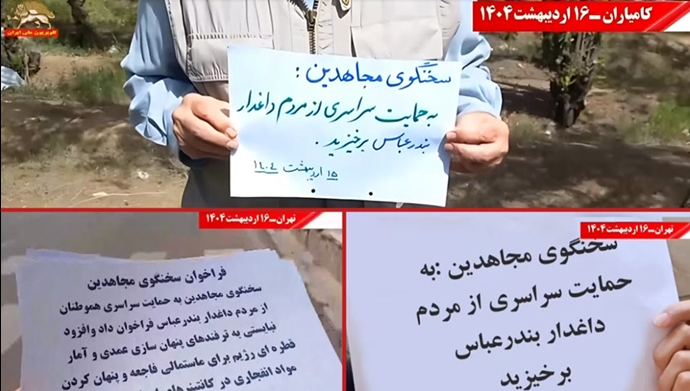 تلویزیون ملی ایران
کامیاران ـ ۱۶ اردیبهشت ۱۴۰۴
سخنگوی مجاهدین :
به حمایت سراسری از مردم داغدار
بندرعباس برخیزید .
۱۵ اردیبهشت ۱۴۰۴
تهران ـ ۱۶ اردیبهشت ۱۴۰۴
فراخوان سخنگوی مجاهدین
سخنگوی مجاهدین به حمایت سراسری هموطنان
از مردم داغدار بندرعباس فراخوان داد وافزود
نبایستی به ترفندهای پنهان سازی عمدی و آمار
قطره ای رژیم برای ماستمالی فاجعه و پنهان کردن
مواد انفجاری در کانتینرهای
تهران ـ ۱۶ اردیبهشت ۱۴۰۴
سخنگوی مجاهدین :به
حمایت سراسری از مردم
داغدار بندرعباس
برخیزید